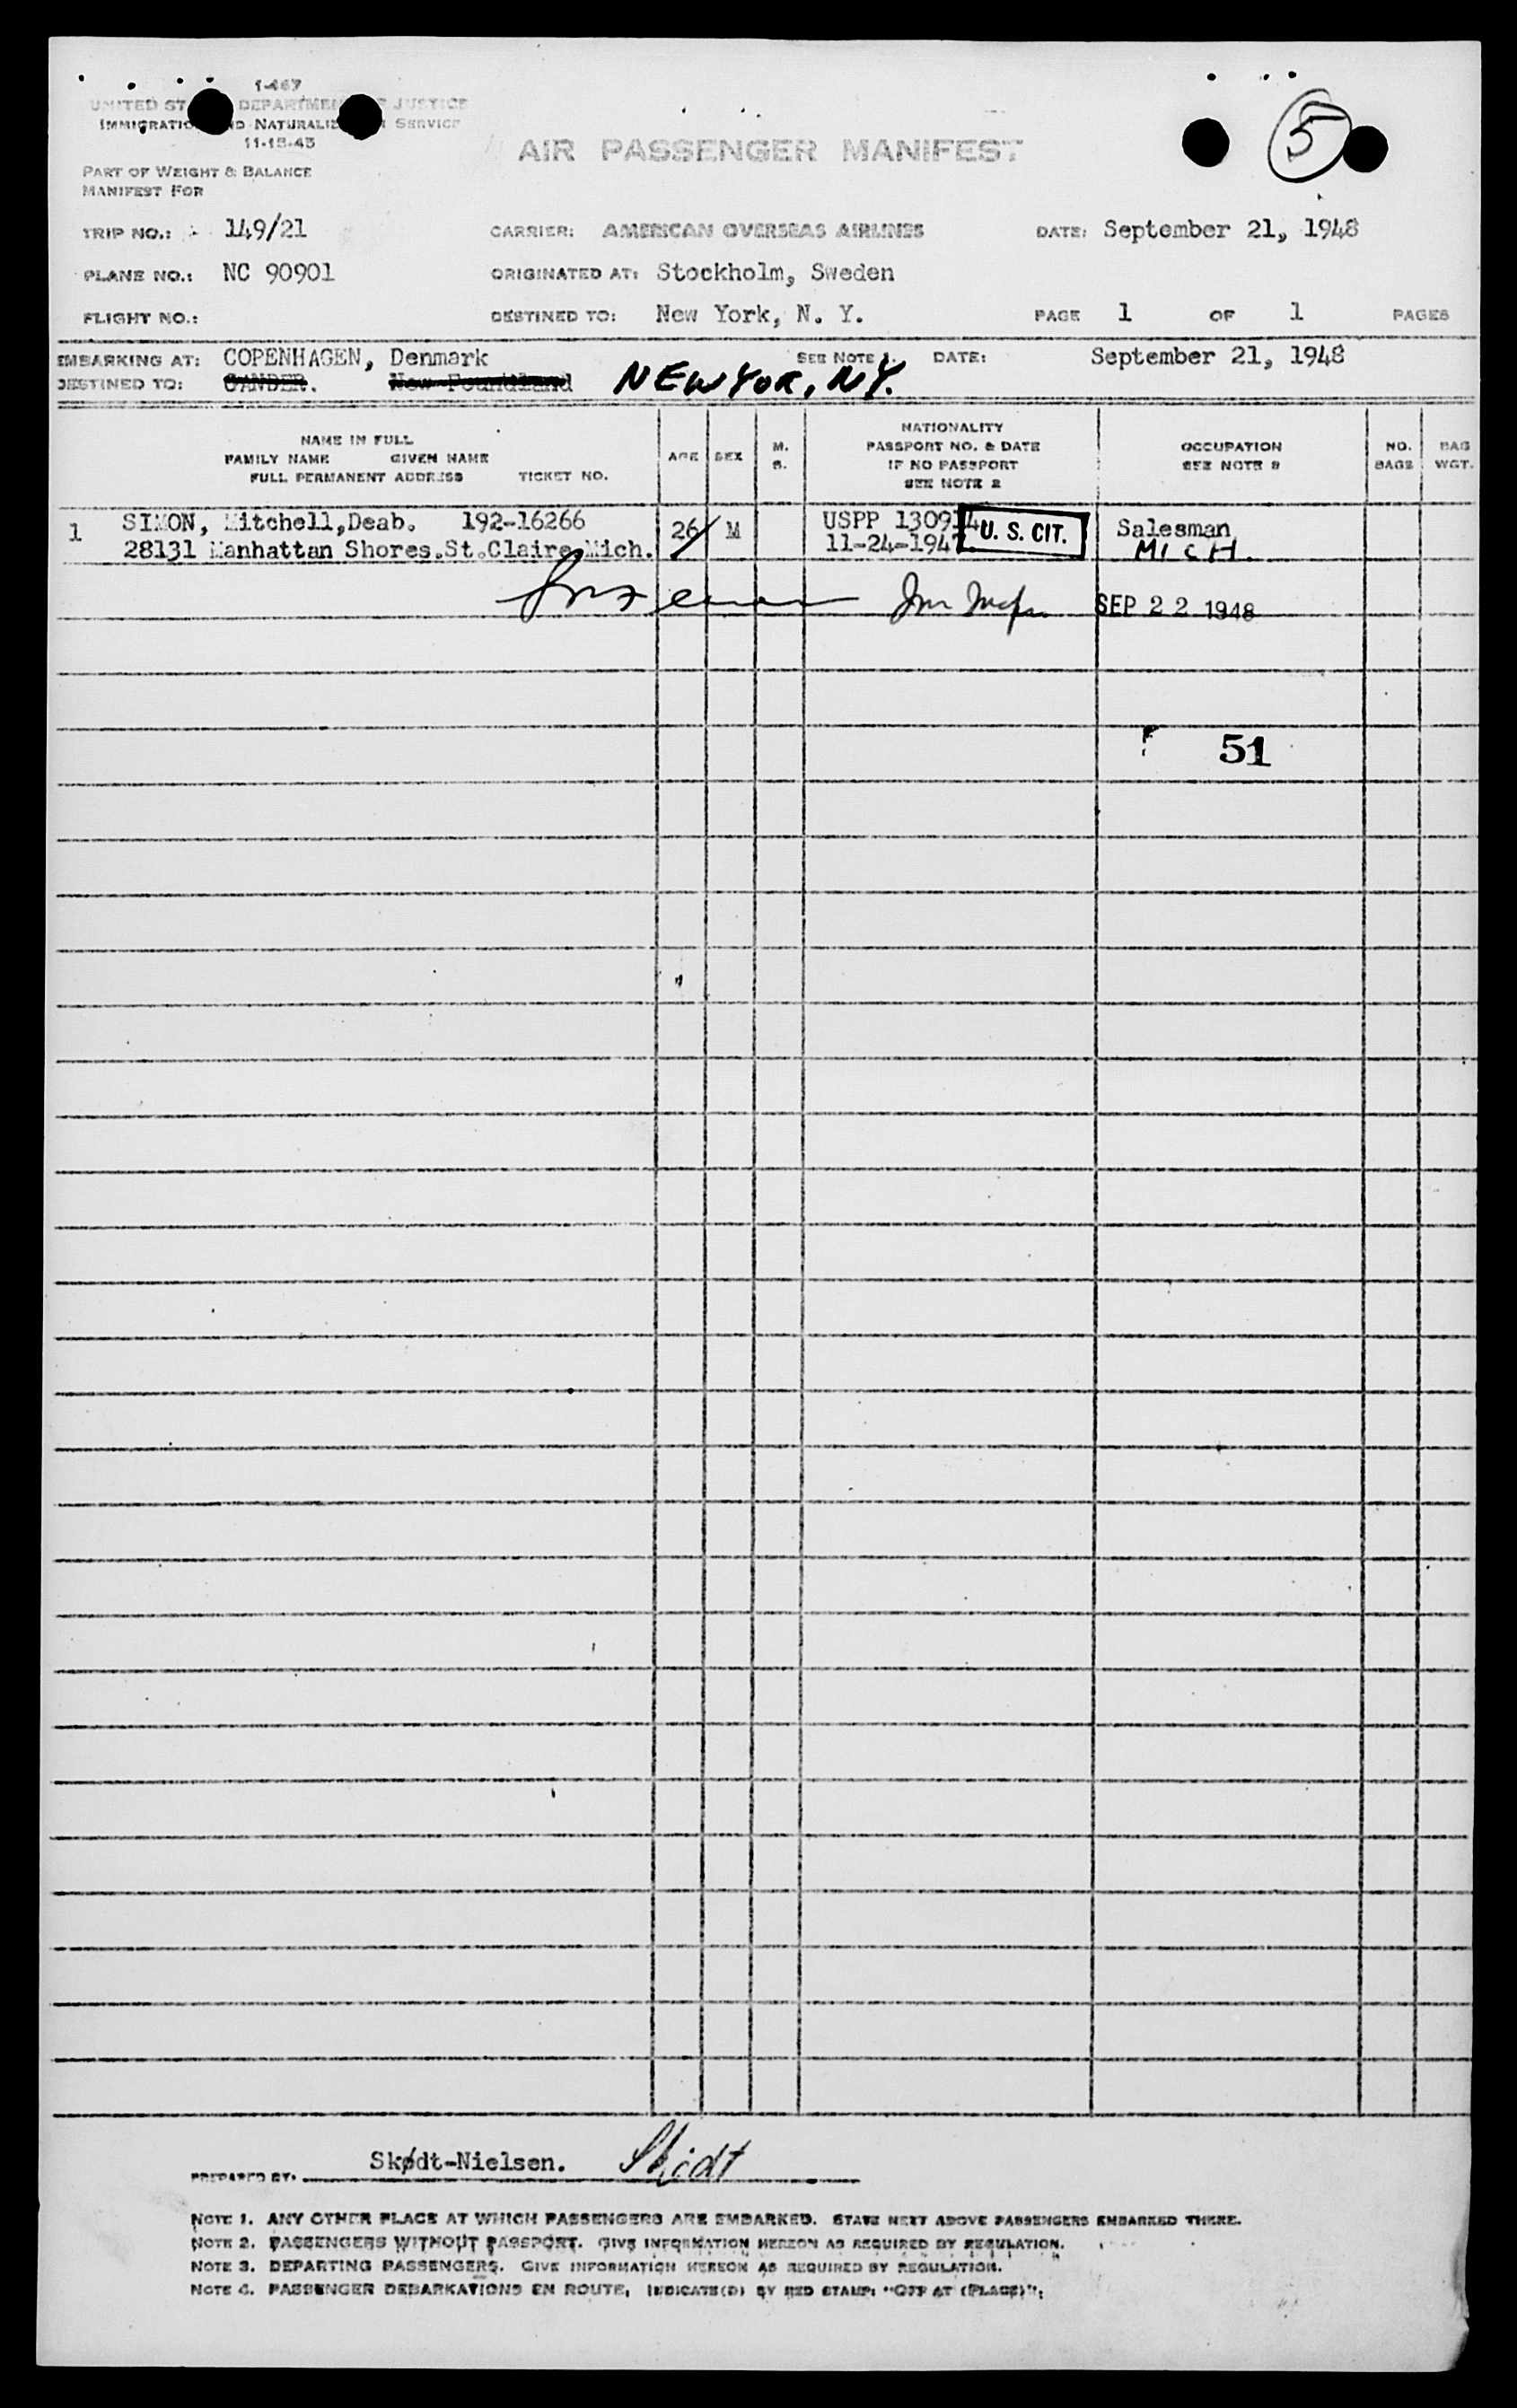 I-467
UNITED ST DEPARTMEN JUSTICE
IMMIGRATIO ND NATURALIZ N SERVICE
11-15-45
5
AIR PASSENGER MANIFEST
PART OF WEIGHT & BALANCE
MANIFEST FOR
TRIP NO.: 149/21 CARRIER: AMERICAN OVERSEAS AIRLINES DATE: September 21, 1948
PLANE NO.: NC 90901 ORIGINATED AT: Stockholm, Sweden
FLIGHT NO.: DESTINED TO: New York, N. Y. PAGE 1 OF 1 PAGES
EMBARKING AT: COPENHAGEN, Denmark SEE NOTE 1. DATE: September 21, 1948
DESTINED TO: GANDER. New Foundland NEW YOR, NY.
NAME IN FULL
FAMILY NAME GIVEN NAME
FULL PERMANENT ADDRESS TICKET NO.
AGE
SEX
M.
S.
NATIONALITY
PASSPORT NO. & DATE
IF NO PASSPORT
SEE NOTE 2
OCCUPATION
SEE NOTE 3
NO.
BAGS
BAG
WGT.
1 SIMON, Mitchell,Deab. 192-16266 26 M USPP U. S. CIT. Salesman
28131 Manhattan Shores.St.Claire Mich. MICH.
SEP 22 1948
51
PREPARED BY: Skødt-Nielsen. Skødt
NOTE 1. ANY OTHER PLACE AT WHICH PASSENGERS ARE EMBARKED. STATE NEXT ABOVE PASSENGERS EMBARKED THERE.
NOTE 2. PASSENGERS WITHOUT PASSPORT. GIVE INFORMATION HEREON AS REQUIRED BY REGULATION.
NOTE 3. DEPARTING PASSENGERS. GIVE INFORMATION HEREON AS REQUIRED BY REGULATION.
NOTE 4. PASSENGER DEBARKATIONS EN ROUTE, INDICATE(D) BY RED STAMP: "OFF AT (PLACE)".